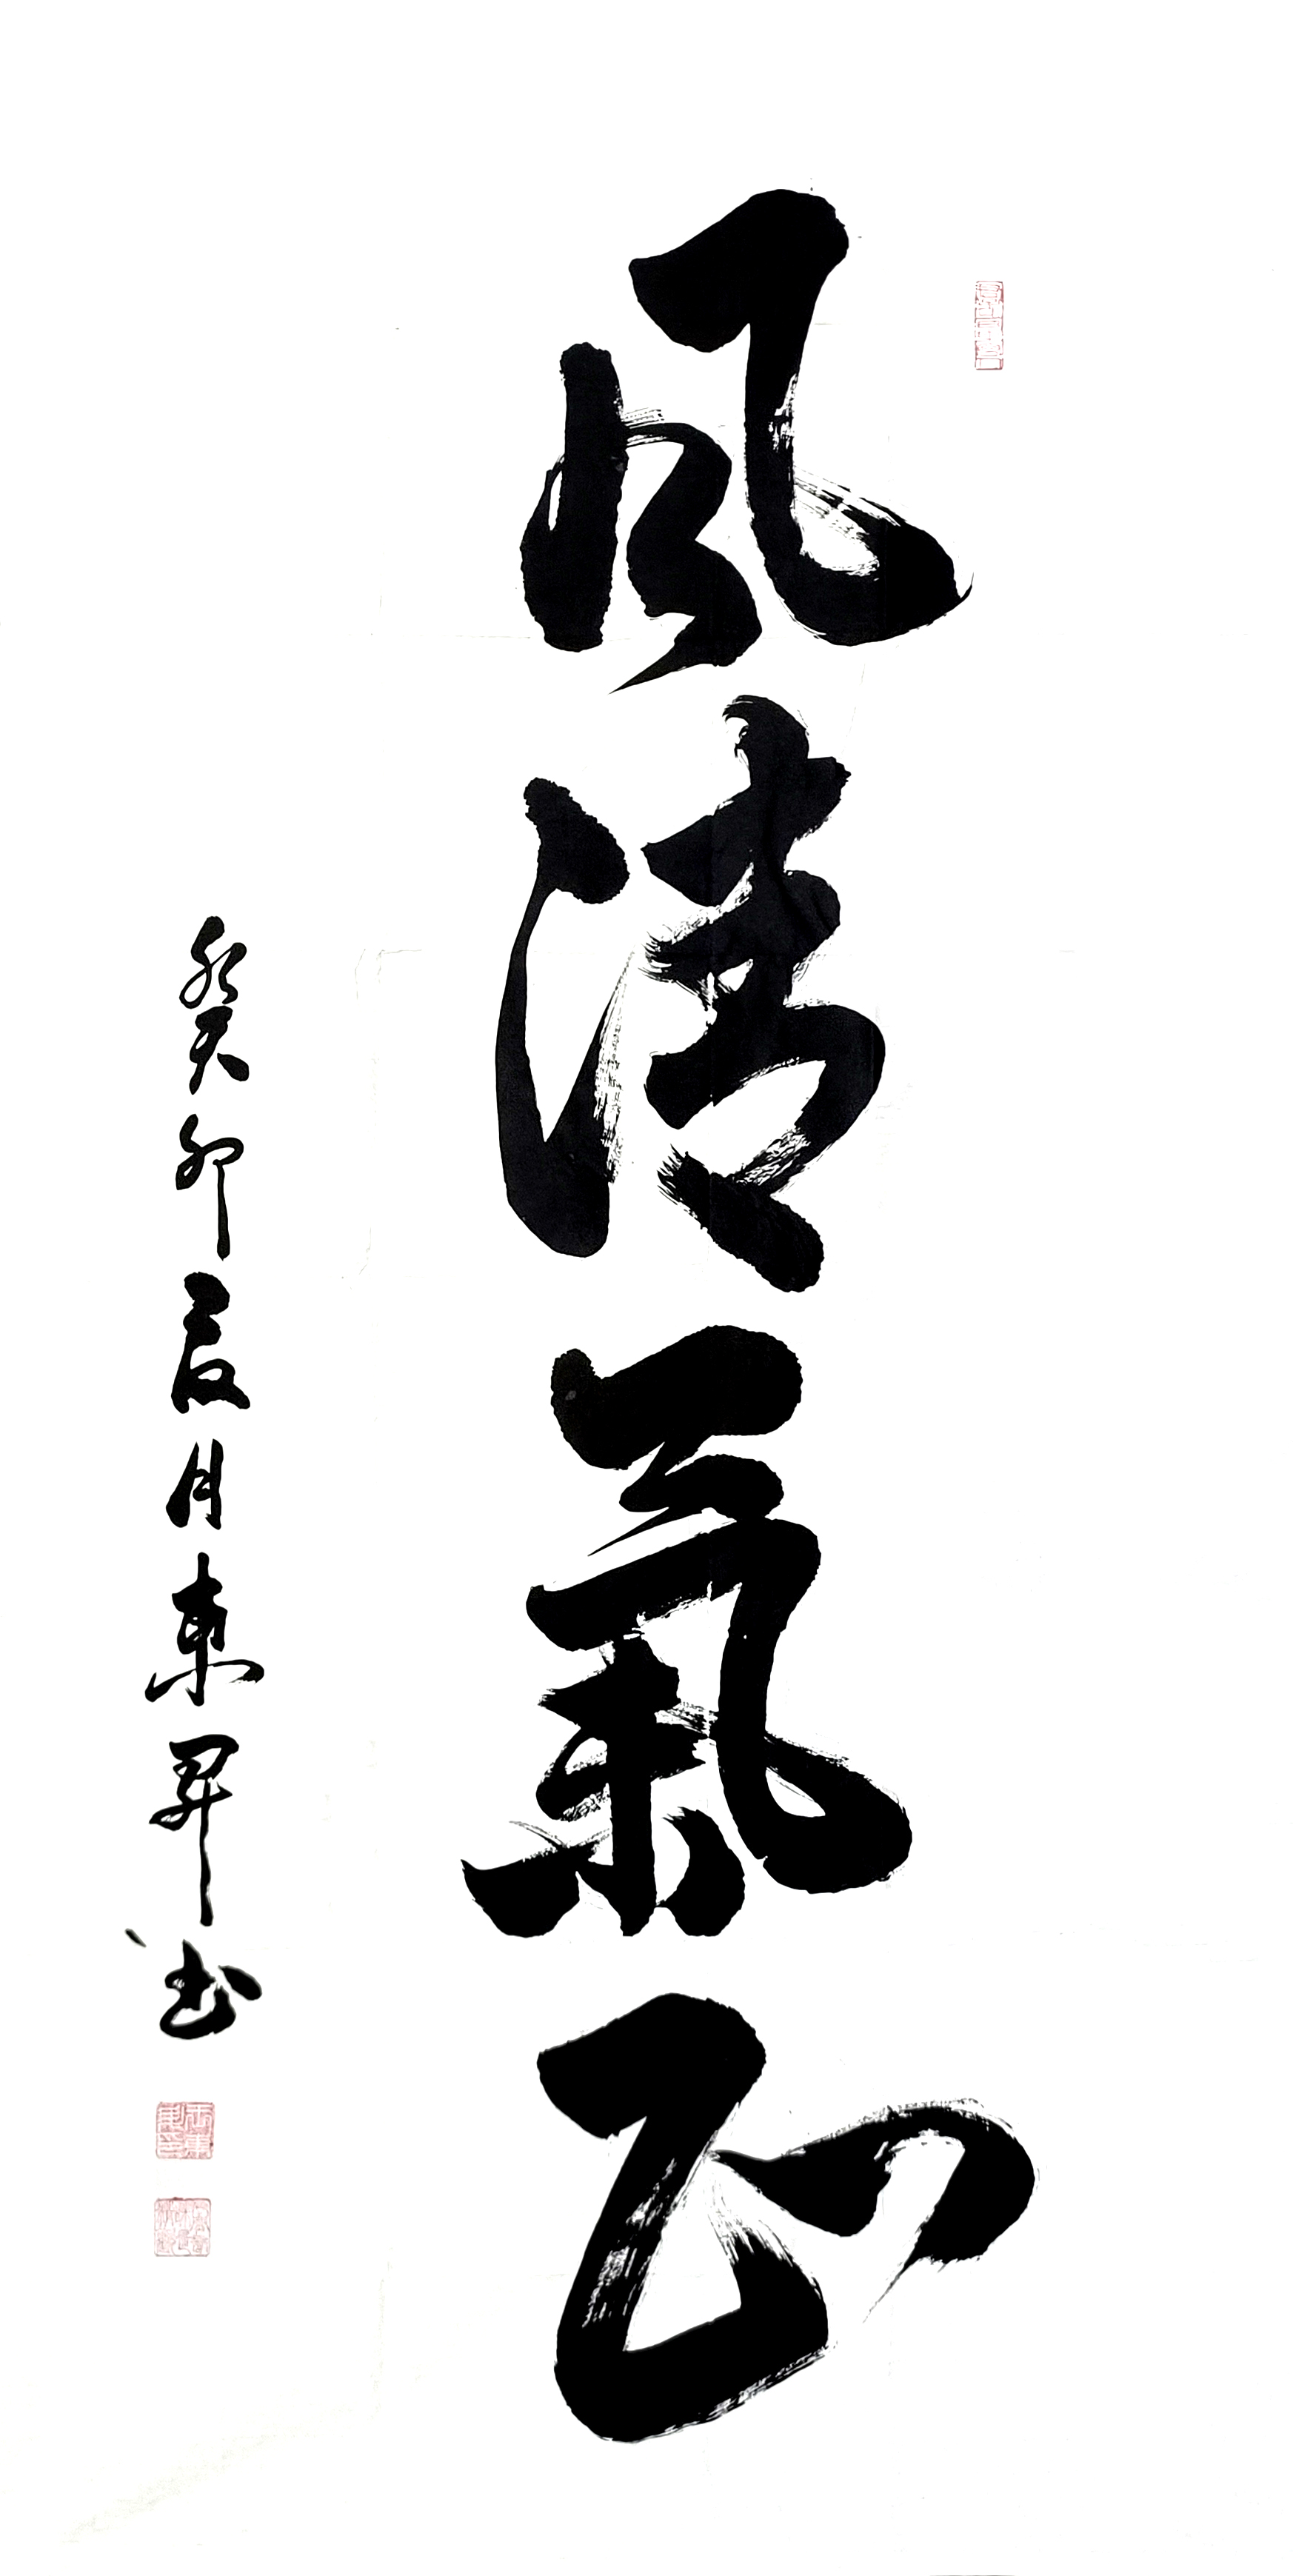 風清氣正
癸卯夏月東昇書